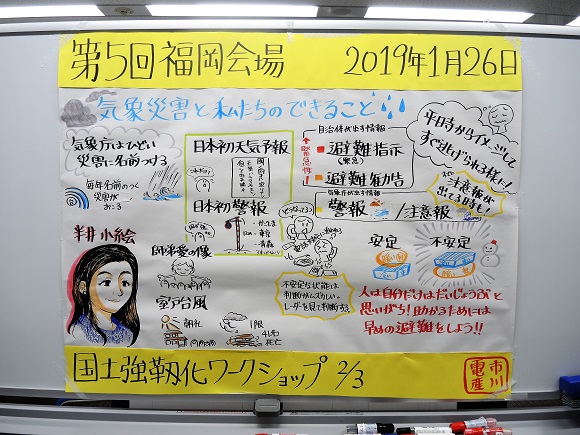 第5回福岡会場 2019年1月26日
気象災害と私たちのできること
気象庁はひどい
災害に名前つける
毎年名前のつく
災害が
おこる
日本初天気予報
日本初警報
自治体が出す情報
緊急性
避難指示
(緊急)
避難勧告
気象庁が出す情報
警報/注意報
平日時からイメージして
すぐ逃げられる様に!
注意報が
出てる時も!
半井小絵
師弟愛の像
室戸台風
朝礼
どうなってる?
安定 不安定
不安定な状態は
判断がムズかしい。
レーダーを見て判断する
人は自分だけはだいじょうぶと
思いがち!助かるためには
早めの避難をしよう!!
国土強靱化ワークショップ 2/3
市川
電産